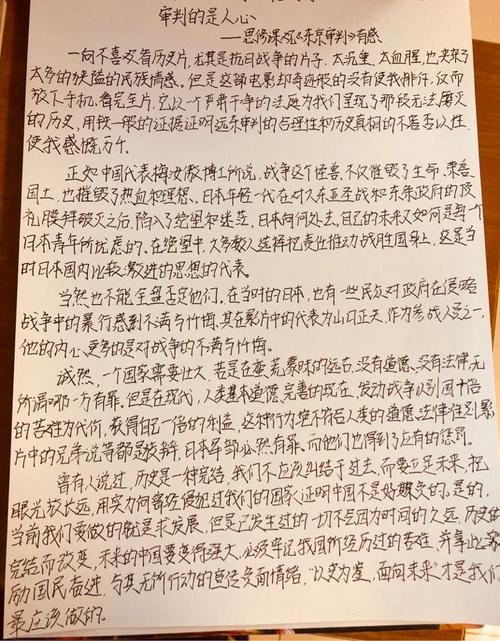 审判的是人心
——思修课观《东京审判》有感
一向不喜欢看历史片,尤其是抗日战争的片子,太沉重,太血腥,也夹杂了
太多的狭隘的民族情感。但是这部电影却奇迹般的没有使我排斥,反而
放下手机,看完全片。它以一个严肃干净的法庭为我们呈现了那段无法磨灭
的历史,用铁一般的证据证明远东审判的合理性和历史真相的不容否认性,
使我感慨万千。
正如中国代表梅汝璈博士所说,战争这个怪兽,不仅摧毁了生命、荣誉、
国土,也摧毁了热血和理想。日本年轻一代在对大东亚圣战和东条政府的顶
礼膜拜破灭之后,陷入了绝望和迷茫,日本向何处去,自己的未来又如何是每个
日本青年所忧虑的。在绝望中,大多数人选择把责任推动战胜国身上,这是当
时日本国内比较激进的思想的代表。
当然也不能全盘否定他们。在当时的日本,也有一些民众对政府在侵略
战争中的暴行感到不满与忏悔,其在影片中的代表为山口正夫,作为参战人员之一,
他的内心更多的是对战争的不满与忏悔。
诚然,一个国家需要壮大,若是在蛮荒蒙昧的远古,没有道德、没有法律,无
所谓哪一方有罪。但是在现代,人类基本道德完善的现在,发动战争以别国十倍
的苦难为代价,获得自己一倍的利益,这种行为绝不符合人类的道德、法律准则,影
片中的兄弟说等都是狡辩,日本军部必然有罪。而他们也得到了应有的惩罚。
曾有人说过,历史是一种完结,我们不应该纠结于过去,而要立足未来,把
眼光放长远,用实力向曾经侵犯过我们的国家证明中国不是好欺负的。是的,
当前我们要做的就是求发展,但是已发生过的一切不会因为时间的久远、历史的
完结而改变,未来的中国要变得强大,必须牢记我国所经历过的苦难,并拿此来
励国民奋进,与其无所行动的宣传负面情绪,“以史为鉴,面向未来”才是我们
最应该做的。